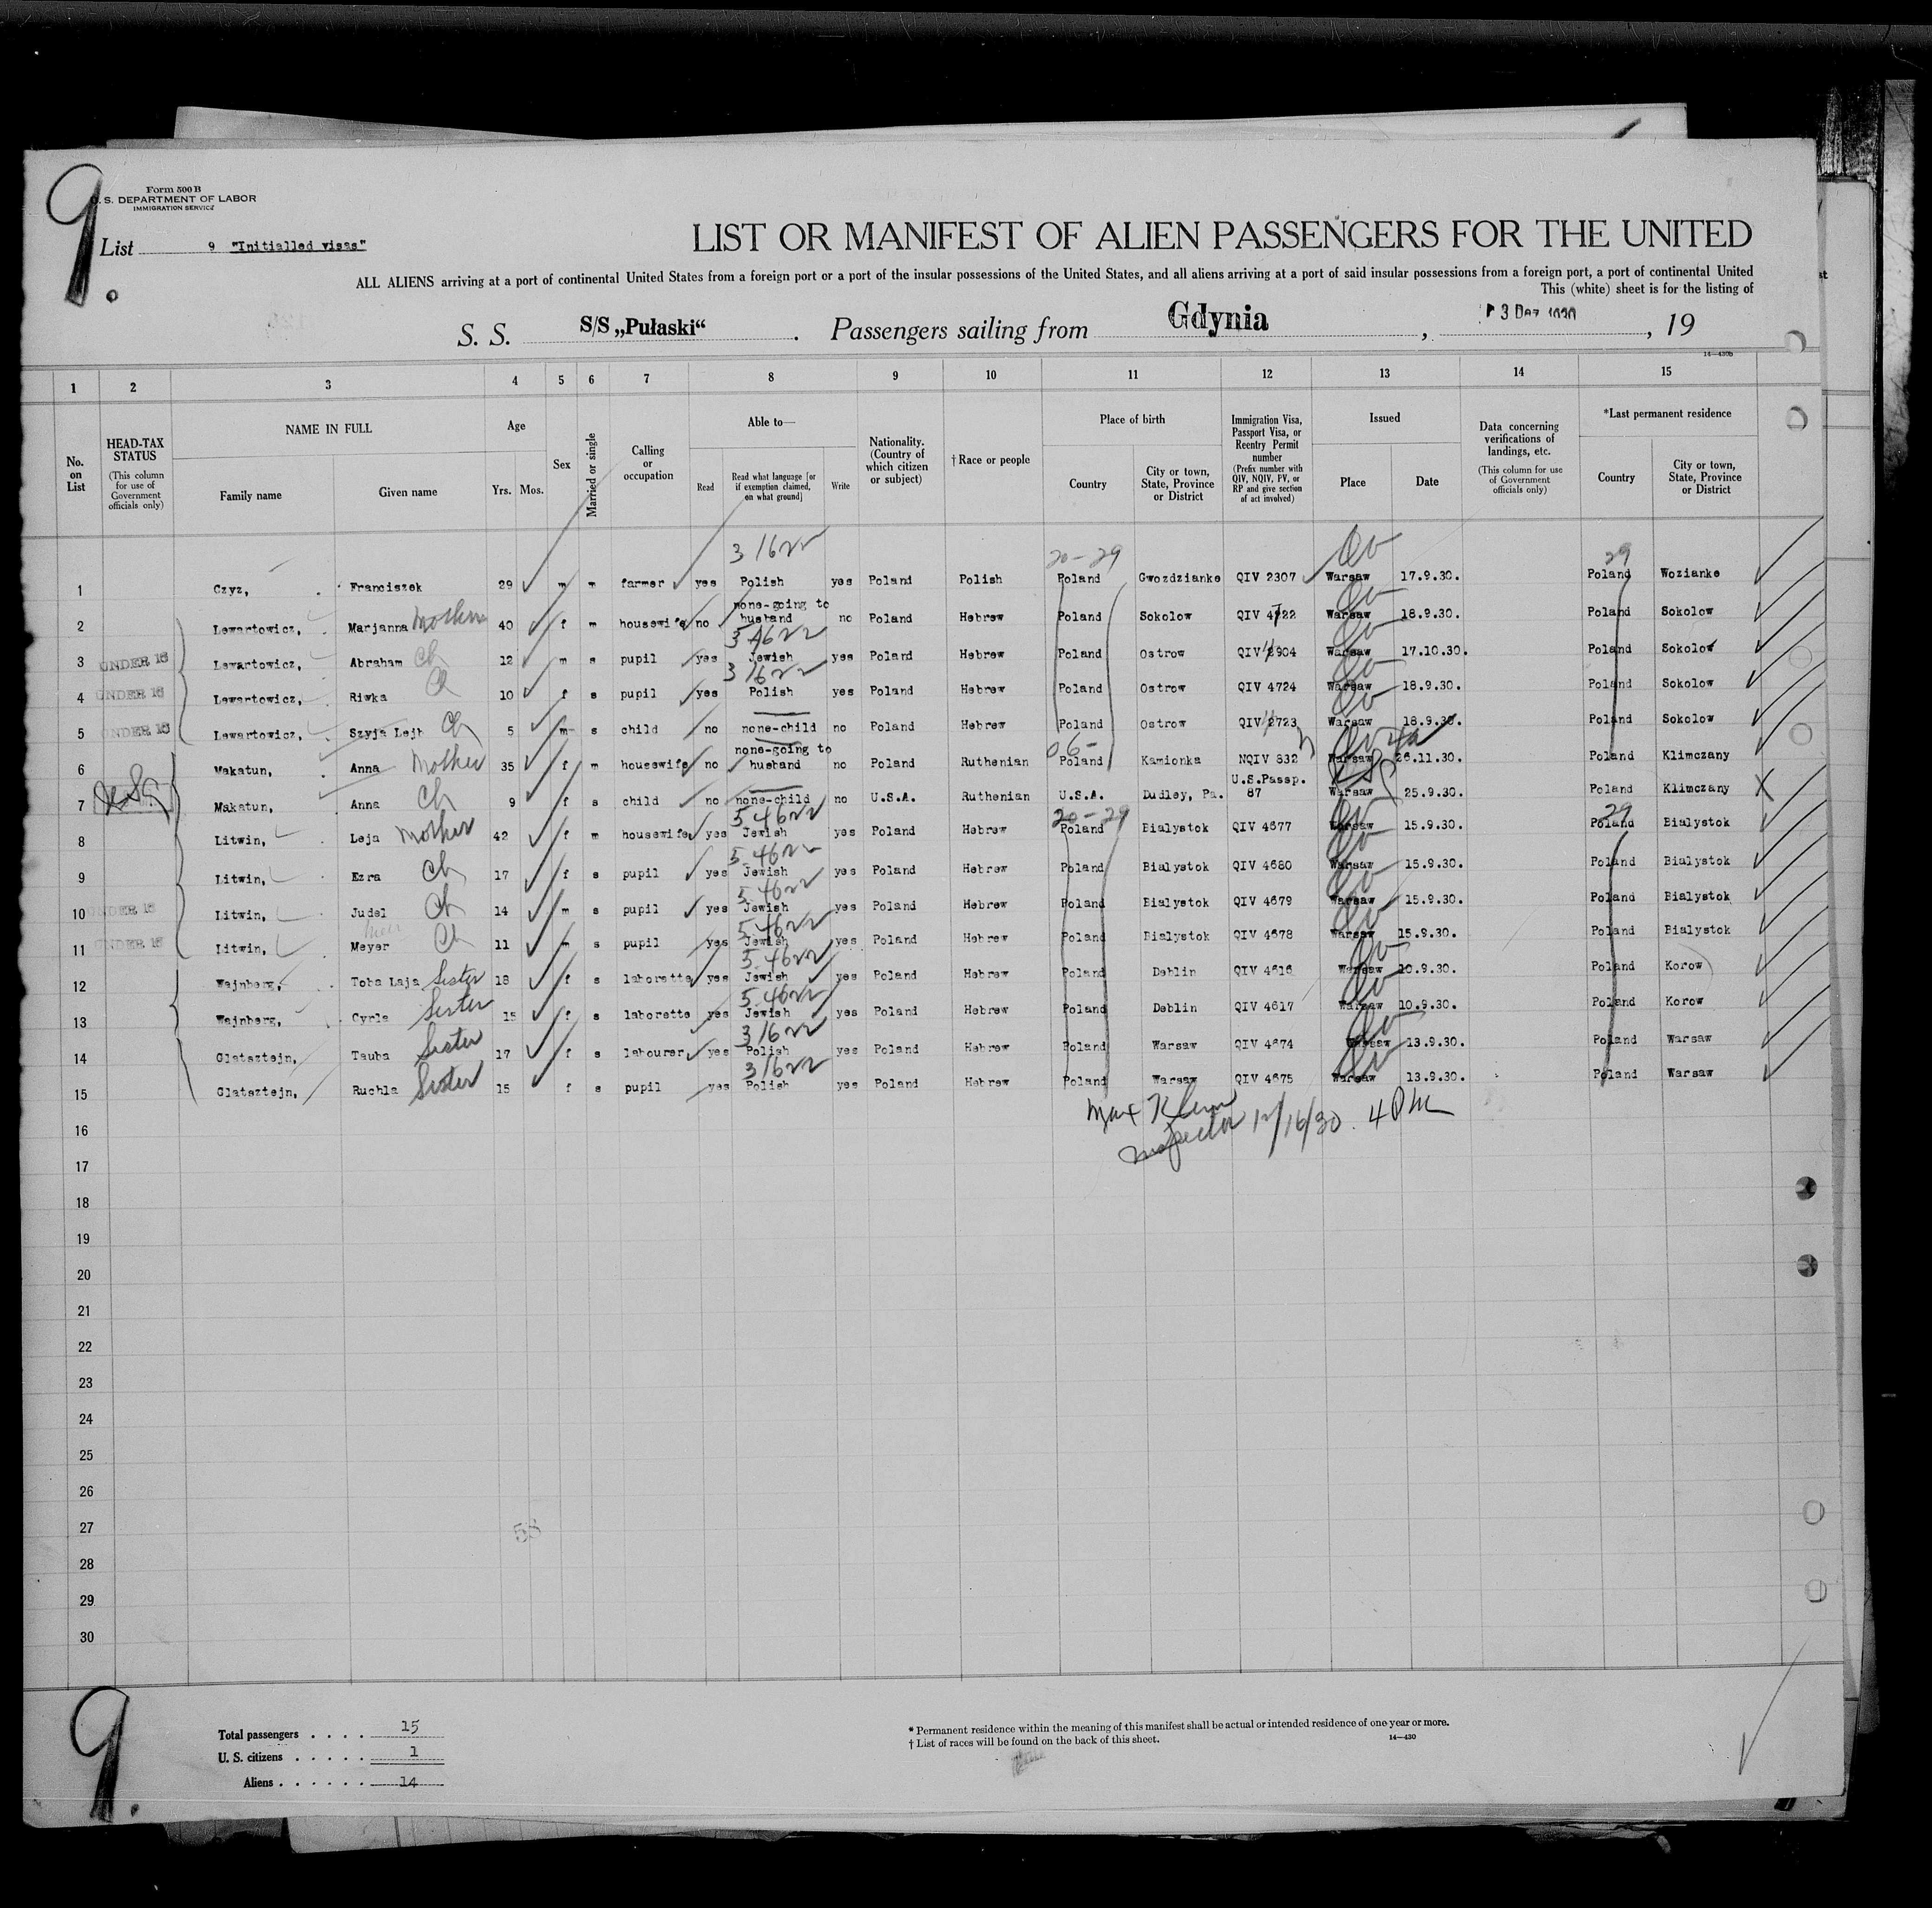 9.
Form 500 B
U. S. DEPARTMENT OF LABOR
IMMIGRATION SERVICE
List 9 "Initialled visas"
LIST OR MANIFEST OF ALIEN PASSENGERS FOR THE UNITED
ALL ALIENS arriving at a port of continental United States from a foreign port or a port of the insular possessions of the United States, and all aliens arriving at a port of said insular possessions from a foreign port, a port of continental United
This (white) sheet is for the listing of
S. S. S/S „Pułaski“. Passengers sailing from Gdynia, 3 Dez 1930, 19
14—430b
1 2 3 4 5 6 7 8 9 10 11 12 13 14 15
No. on List
HEAD-TAX STATUS (This column for use of Government officials only)
NAME IN FULL Family name Given name
Age Yrs. Mos.
Sex
Married or single
Calling or occupation
Able to— Read Read what language [or if exemption claimed, on what ground] Write
Nationality. (Country of which citizen or subject)
† Race or people
Place of birth Country City or town, State, Province or District
Immigration Visa, Passport Visa, or Reentry Permit number (Prefix number with QIV, NQIV, PV, or RP and give section of act involved)
Issued Place Date
Data concerning verifications of landings, etc. (This column for use of Government officials only)
*Last permanent residence Country City or town, State, Province or District
31622 20-29 29
1 Czyz, Franciszek 29 m m farmer yes Polish yes Poland Polish Poland Gwozdzianke QIV 2307 Warsaw 17.9.30. Poland Wozianke
2 Lewartowicz, Marjanna Mother 40 f m housewife no none-going to husband no Poland Hebrew Poland Sokolow QIV 4722 Warsaw 18.9.30. Poland Sokolow
54622
3 UNDER 16 Lewartowicz, Abraham Ch 12 m s pupil yes Jewish yes Poland Hebrew Poland Ostrow QIV 2904 Warsaw 17.10.30. Poland Sokolow
31622
4 UNDER 16 Lewartowicz, Riwka Ch 10 f s pupil yes Polish yes Poland Hebrew Poland Ostrow QIV 4724 Warsaw 18.9.30. Poland Sokolow
5 UNDER 16 Lewartowicz, Szyja Lejb Ch 5 m s child no none-child no Poland Hebrew Poland Ostrow QIV 2723 Warsaw 18.9.30. Poland Sokolow
06-
6 Makatun, Anna Mother 35 f m housewife no none-going to husband no Poland Ruthenian Poland Kamionka NQIV 832 Warsaw 26.11.30. Poland Klimczany
7 Makatun, Anna Ch 9 f s child no none-child no U.S.A. Ruthenian U.S.A. Dudley, Pa. U.S.Passp. 87 Warsaw 25.9.30. Poland Klimczany X
54622 20-29 29
8 Litwin, Leja Mother 42 f m housewife yes Jewish yes Poland Hebrew Poland Bialystok QIV 4677 Warsaw 15.9.30. Poland Bialystok
54622
9 Litwin, Ezra Ch 17 f s pupil yes Jewish yes Poland Hebrew Poland Bialystok QIV 4680 Warsaw 15.9.30. Poland Bialystok
54622
10 UNDER 16 Litwin, Judel Ch 14 m s pupil yes Jewish yes Poland Hebrew Poland Bialystok QIV 4679 Warsaw 15.9.30. Poland Bialystok
54622
11 UNDER 16 Litwin, Meyer Ch 11 m s pupil yes Jewish yes Poland Hebrew Poland Bialystok QIV 4678 Warsaw 15.9.30. Poland Bialystok
54622
12 Wajnberg, Toba Laja Sister 18 f s laborette yes Jewish yes Poland Hebrew Poland Deblin QIV 4616 Warsaw 10.9.30. Poland Korow
54622
13 Wajnberg, Cyrla Sister 15 f s laborette yes Jewish yes Poland Hebrew Poland Deblin QIV 4617 Warsaw 10.9.30. Poland Korow
31622
14 Glatsztejn, Tauba Sister 17 f s labourer yes Polish yes Poland Hebrew Poland Warsaw QIV 4674 Warsaw 13.9.30. Poland Warsaw
31622
15 Glatsztejn, Ruchla Sister 15 f s pupil yes Polish yes Poland Hebrew Poland Warsaw QIV 4675 Warsaw 13.9.30. Poland Warsaw
Max
16 Inspector 12/16/30. 4 PM
17
18
19
20
21
22
23
24
25
26
27
58
28
29
30
9.
Total passengers . . . . 15
U. S. citizens . . . . . 1
Aliens . . . . . . 14
* Permanent residence within the meaning of this manifest shall be actual or intended residence of one year or more.
† List of races will be found on the back of this sheet.
14—430